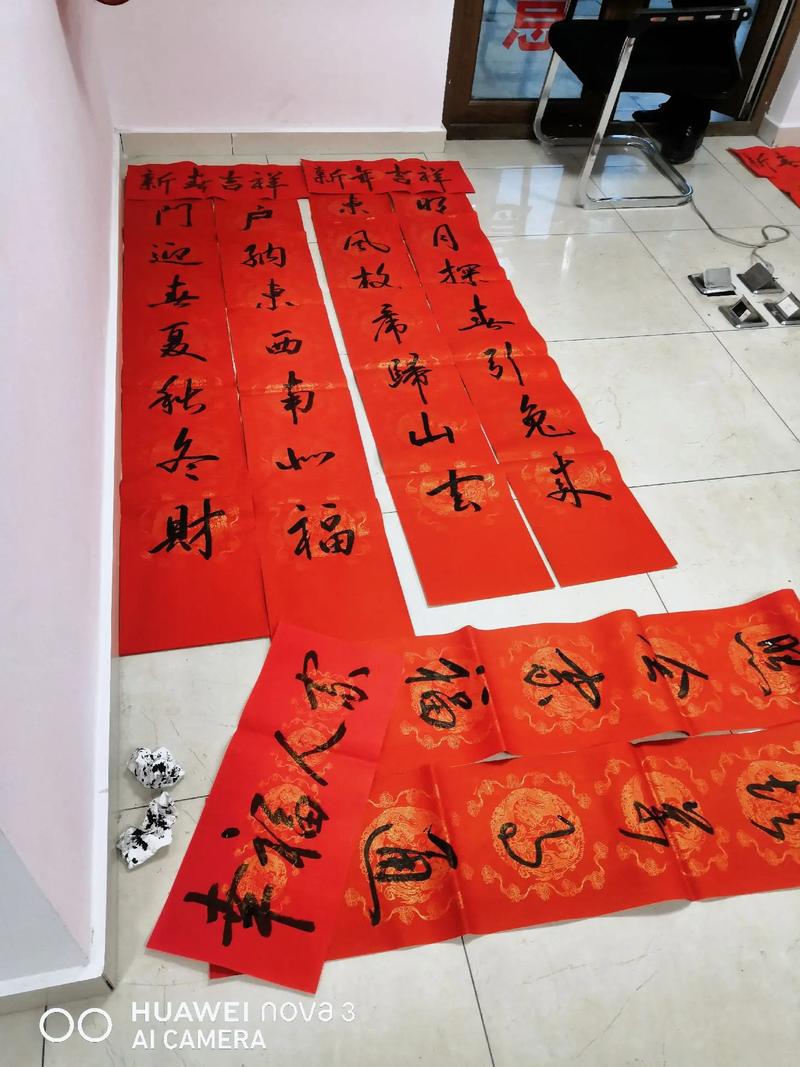 新春吉祥
新年吉祥
門迎春夏秋冬財
户納东西南北福
东風放虎歸山去
明月探春引兔来
新春
幸福人家
全家福
HUAWEI nova 3
AI CAMERA